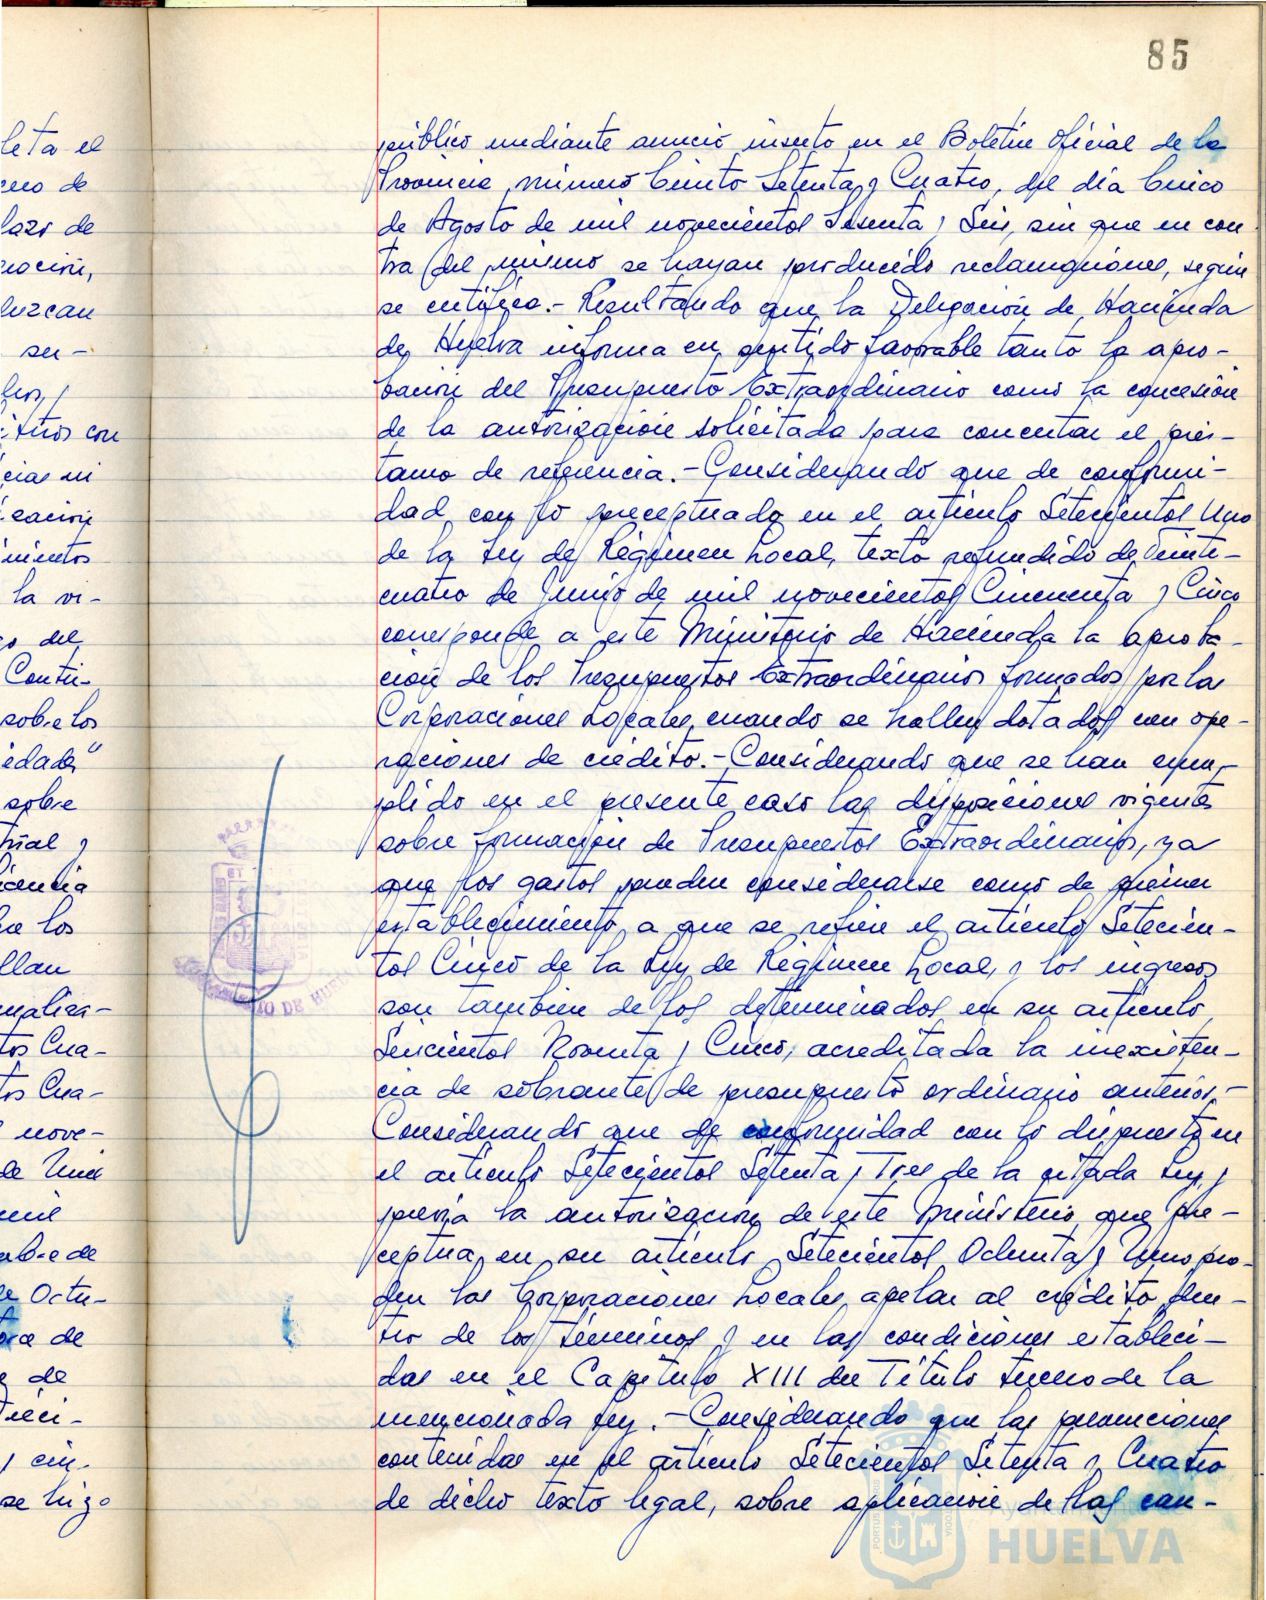 85
público mediante anuncio inserto en el Boletín Oficial de la
Provincia, número Ciento Setenta y Cuatro, del día Cinco
de Agosto de mil novecientos Sesenta y Seis, sin que en con
tra del mismo se hayan producido reclamaciones, según
se certifica.- Resultando que la Delegación de Hacienda
de Huelva informa en sentido favorable tanto la apro-
bación del Presupuesto Extraordinario como la concesión
de la autorización solicitada para concertar el prés-
tamo de referencia.- Considerando que de conformi-
dad con lo preceptuado en el artículo Setecientos Uno
de la Ley de Régimen Local, texto refundido de Veinti-
cuatro de Junio de mil novecientos Cincuenta y Cinco
corresponde a este Ministerio de Hacienda la aproba-
ción de los Presupuestos Extraordinarios formados por las
Corporaciones Locales, cuando se hallen dotados con ope-
raciones de crédito.- Considerando que se han cum-
plido en el presente caso las disposiciones vigentes
sobre formación de Presupuestos Extraordinarios, ya
que los gastos pueden considerarse como de primer
establecimiento, a que se refiere el artículo Setecien-
tos Cinco de la Ley de Régimen Local, y los ingresos
son también de los determinados en su artículo
Seiscientos Noventa y Cinco, acreditada la inexisten-
cia de sobrante de presupuesto ordinario anterior.-
Considerando que de conformidad con lo dispuesto en
el artículo Setecientos Setenta y Tres de la citada Ley, y
previa la autorización de este Ministerio, que pre-
ceptua en su artículo Setecientos Ochenta y Uno, pro-
den las Corporaciones Locales, apelar al crédito den-
tro de los términos y en las condiciones estableci-
das en el Capítulo XIII del Título tercero de la
mencionada Ley.- Considerando que las prevenciones
contenidas en el artículo Setecientos Setenta y Cuatro
de dicho texto legal, sobre aplicación de las can-
leta el
lazo de
luzcan
ser-
itos con
cias ni
imientos
la vi-
os del
Conti-
sobre los
iedades"
sobre
trial y
llan
tos Cua-
tos Cua-
nove-
de Una
mil
de Octu-
de
se hizo
AYUNTAMIENTO DE HUELVA
Ayuntamiento de
HUELVA